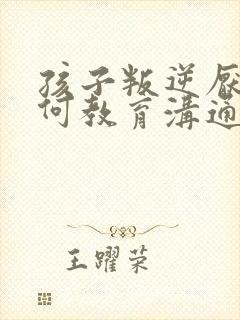 孩子叛逆厌
何教育溝通
王躍荣